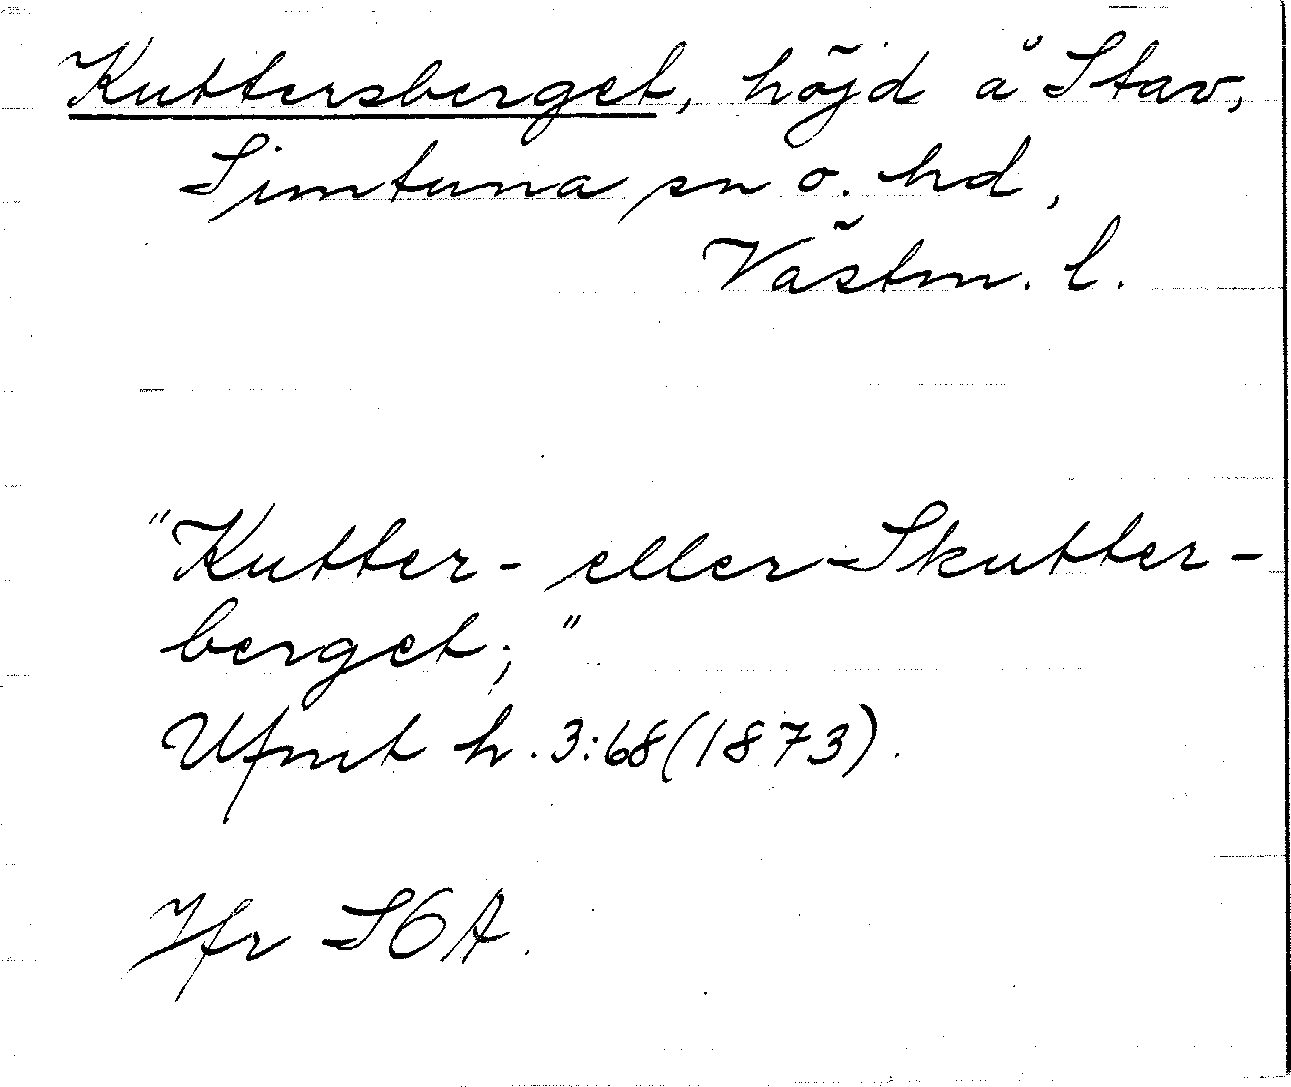 Kuttersberget, höjd å Stav,
Simtuna sn o. hd,
Västm. l.
"Kutter- eller Skutter-
berget;"
Ufmt h. 3:68 (1873).
Jfr SOA.